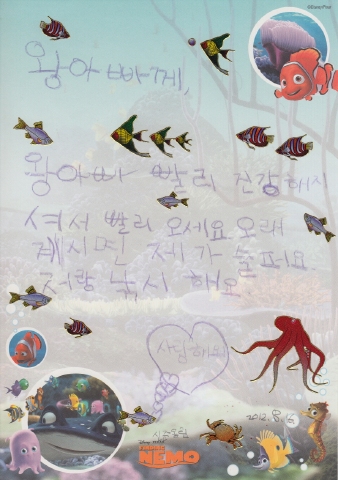 ©Disney/Pixar
왕아빠께,
왕아빠 빨리 건강해지
셔서 빨리 오세요 오래
계시면 제가 슬퍼요.
저랑 낚시 해요
사랑해요
2012. 8. 16
DISNEY·PIXAR
FINDING
NEMO